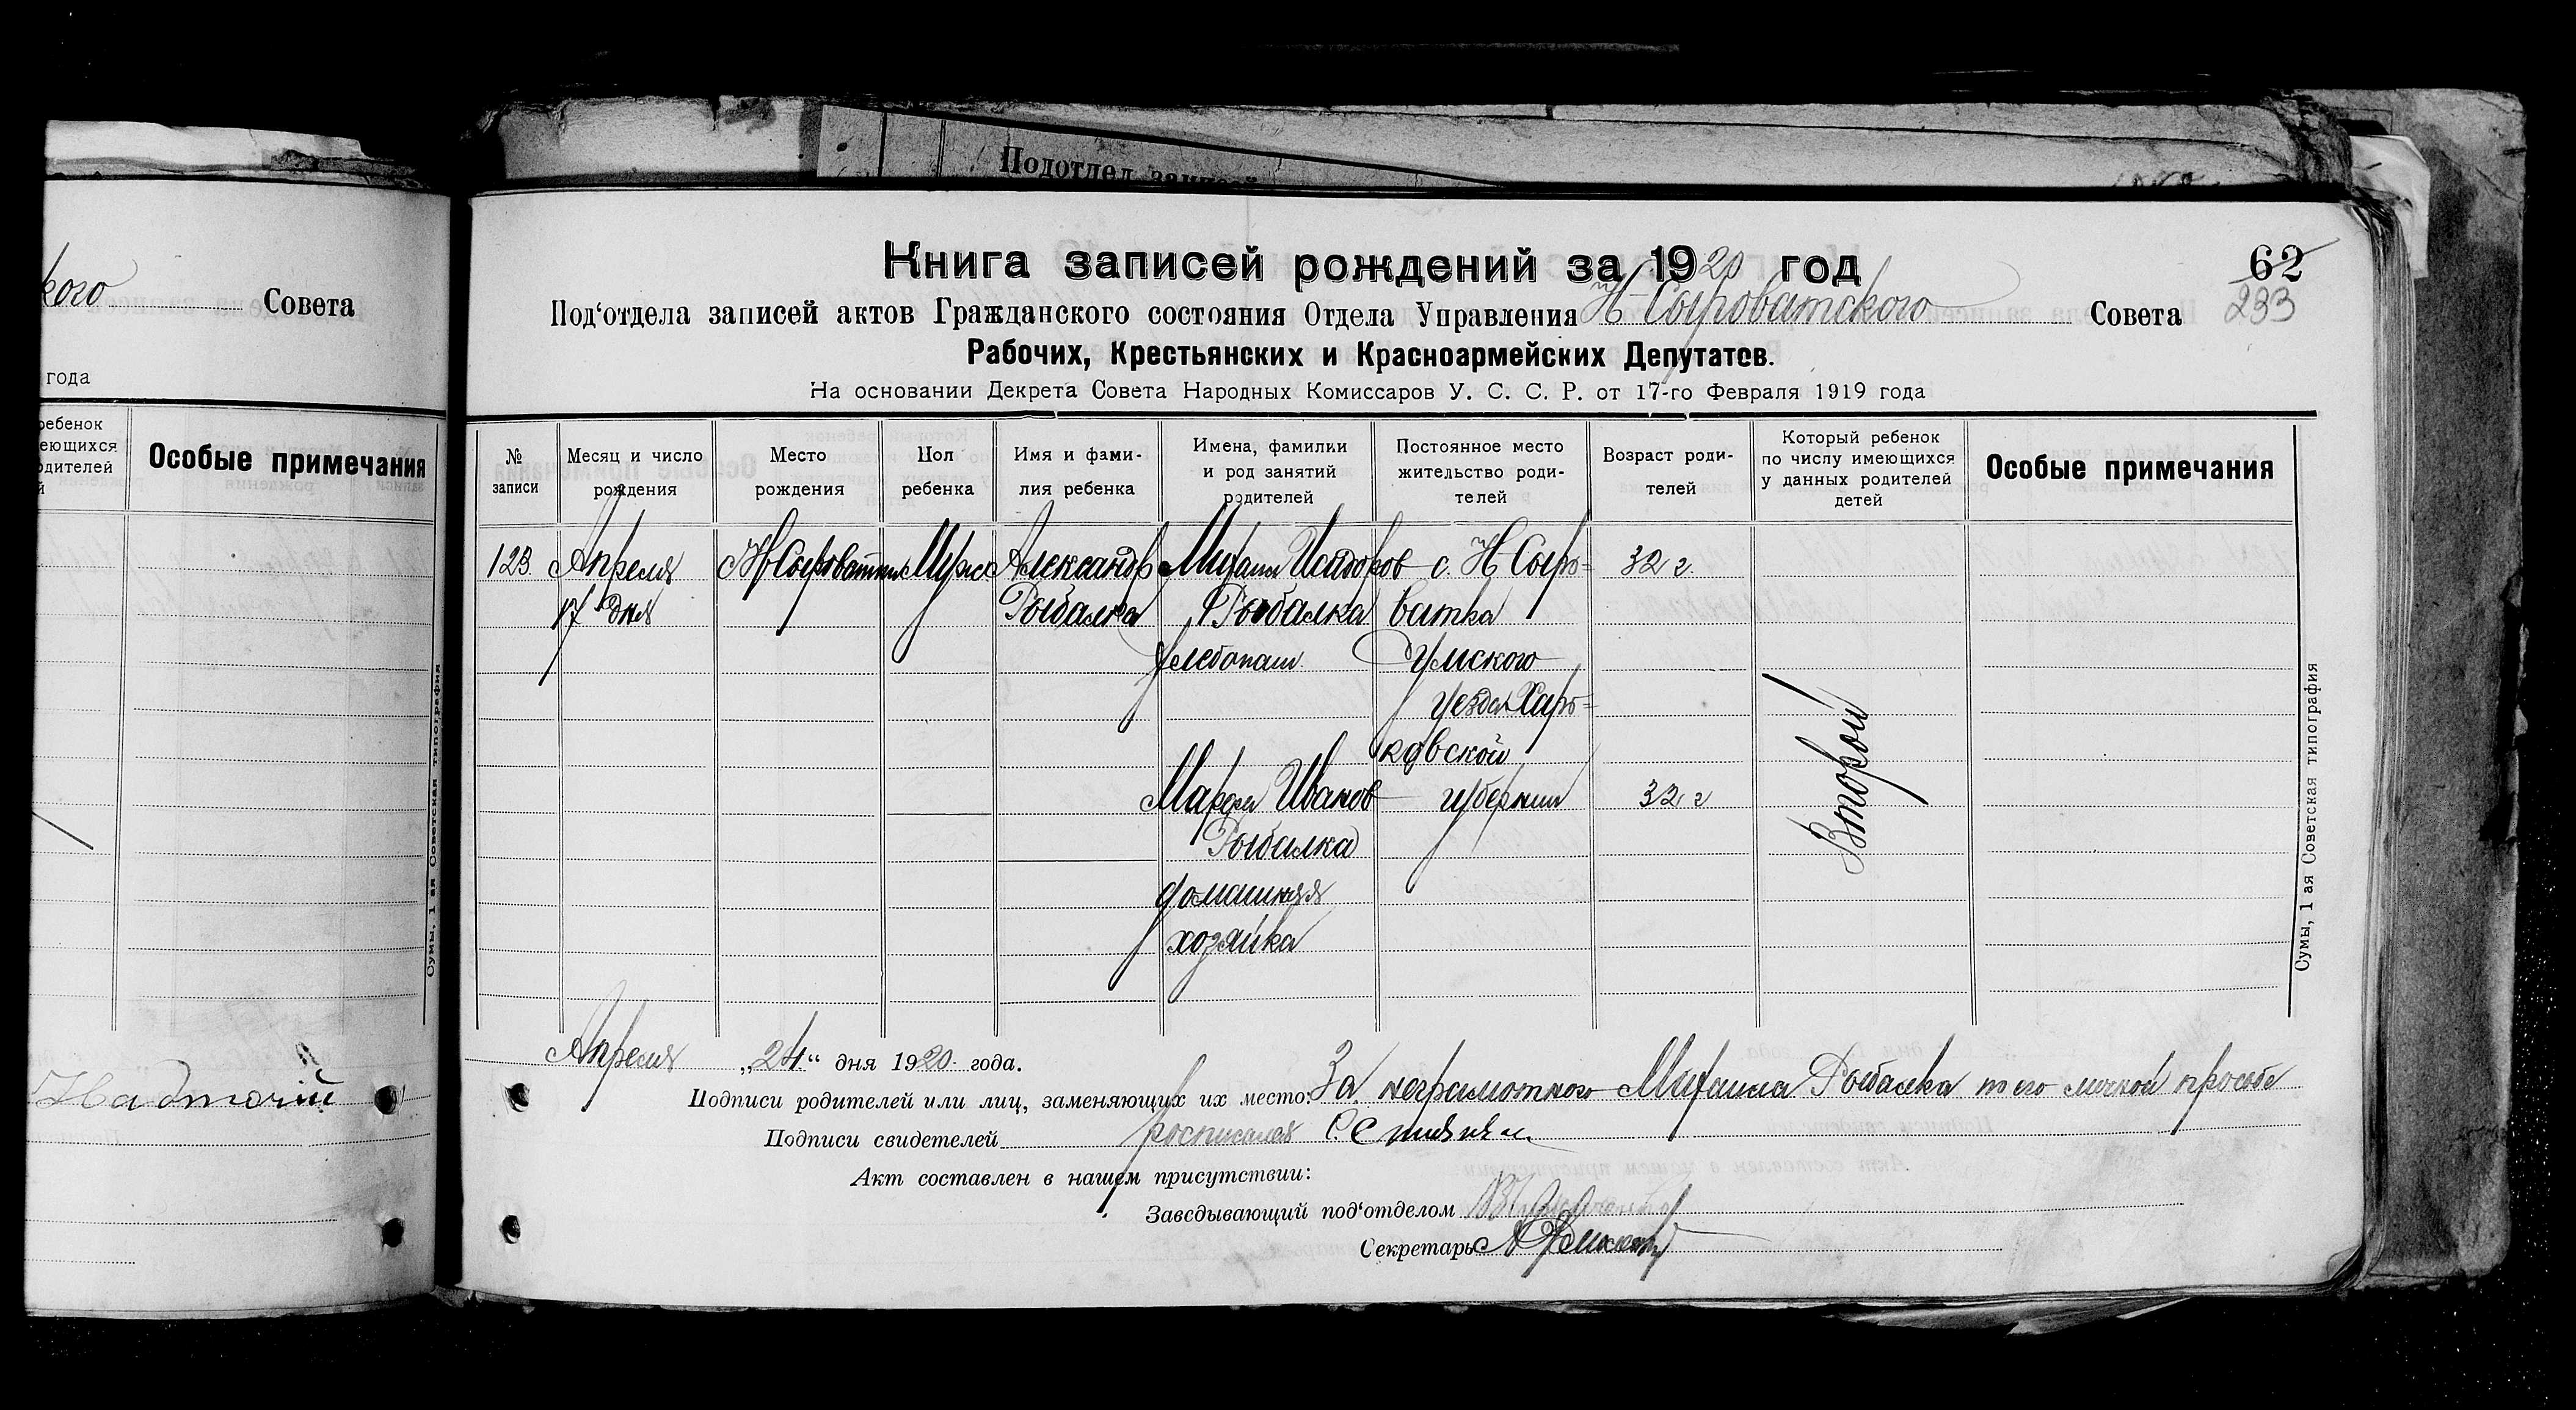 Подотдел записей
кого Совета
года
ребенок
еющихся
одителей
й
Особые примечания
Сумы, 1 ая Советская типография
Надточій
Книга записей рождений за 1920 год
62
Под‘отдела записей актов Гражданского состояния Отдела Управления Н-Сыроватского Совета
233
Рабочих, Крестьянских и Красноармейских Депутатов.
На основании Декрета Совета Народных Комиссаров У. С. С. Р. от 17-го Февраля 1919 года
№ записи
Месяц и число рождения
Место рождения
Пол ребенка
Имя и фами-
лия ребенка
Имена, фамилии
и род занятий
родителей
Постоянное место
жительство роди-
телей
Возраст роди-
телей
Который ребенок
по числу имеющихся
у данных родителей
детей
Особые примечания
123 Апреля Н Сыроватка Мужс Александр Михаил Исидоров с. Н Сыро= 32 г.
17 дня Рыбалка Рыбалка ватка
хлебопаш. Сумского
уезда Харь=
ковской
Марфа Иванов губернии 32 г
Рыбалка
домашняя
хозяйка
Второй
Сумы, 1 ая Советская типография
Апреля „24“ дня 1920 года.
Подписи родителей или лиц, заменяющих их место: За неграмотного Михаила Рыбалка по его личной просьбе
Подписи свидетелей росписался
Акт составлен в нашем присутствии:
Заведывающий под‘отделом
Секретарь